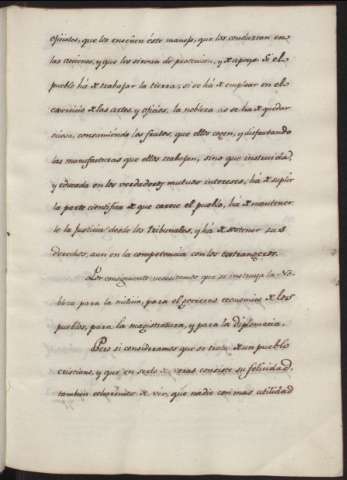 oficiales, que los enseñen éste manejo, que los conduzcan en
las acciones, y que los sirvan de proteccion, y de apoyo. Si el
pueblo há de trabajar la tierra; si se há de emplear en el
exercicio de las artes, y oficios, la nobleza no se ha de quedar
ociosa, consumiendo los frutos, que ellos cogen, y disfrutando
las manufacturas que ellos trabajan, sino que instruida,
y educada en los verdaderos y mutuos intereses, há de suplir
la parte cientifica de que carece el pueblo, há de mantener
le la Justicia desde los tribunales, y há de sostener sus
derechos, aun en la competencia con los extrangeros.
Por consiguiente necesitamos que se instruya la No
bleza para la milicia, para el govierno economico de los
pueblos, para la magistratura, y para la diplomacia.
Pero si consideramos que se trata de un pueblo
cristiano, y que en serlo de veras consiste su felicidad,
tambien echaremos de ver, que nadie con mas utilidad